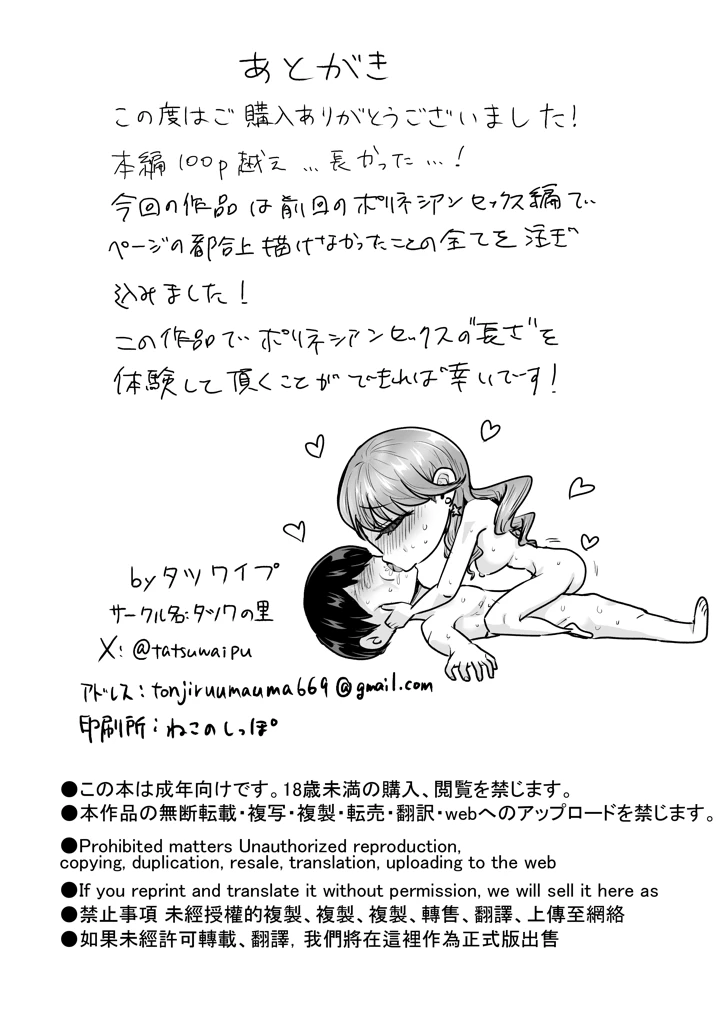 あとがき
この度はご購入ありがとうございました!
本編100p越え…長かった…!
今回の作品は前回のポリネシアンセックス編で
ページの都合上描けなかったことの全てを注ぎ
込みました!
この作品でポリネシアンセックスの"長さ"を
体験して頂くことができれば幸いです!
byタツワイプ
サークル名:タツワの里
X:@tatsuwaipu
アドレス:tonjiruumauma669@gmail.com
印刷所:ねこのしっぽ
●この本は成年向けです。18歳未満の購入、閲覧を禁じます。
●本作品の無断転載・複写・複製・転売・翻訳・webへのアップロードを禁じます。
●Prohibited matters Unauthorized reproduction,
copying, duplication, resale, translation, uploading to the web
●If you reprint and translate it without permission, we will sell it here as
●禁止事項 未經授權的複製、複製、複製、轉售、翻譯、上傳至網絡
●如果未經許可轉載、翻譯, 我們將在這裡作為正式版出售